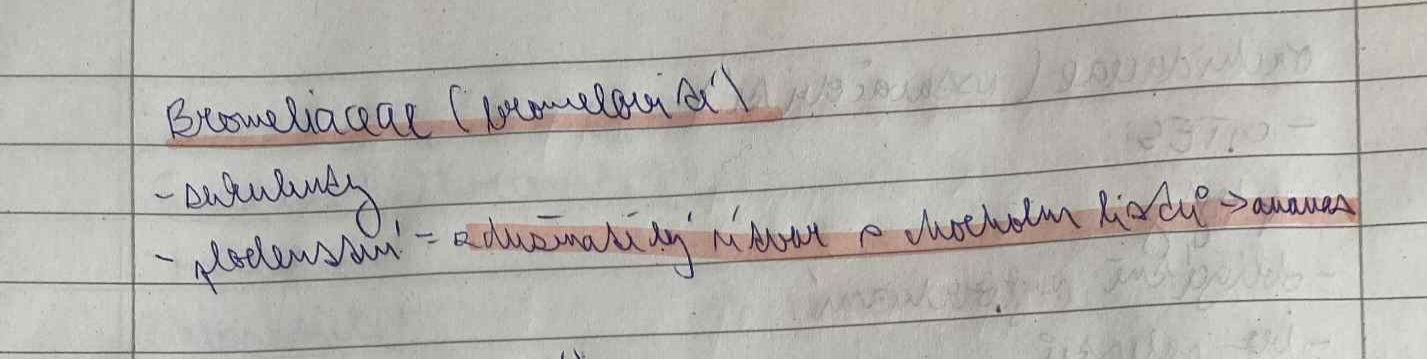 Bromeliaceae (bromeliovité)
- sukulenty
- plodenství = zdužnatělý útvar s chocholem listů -> ananas